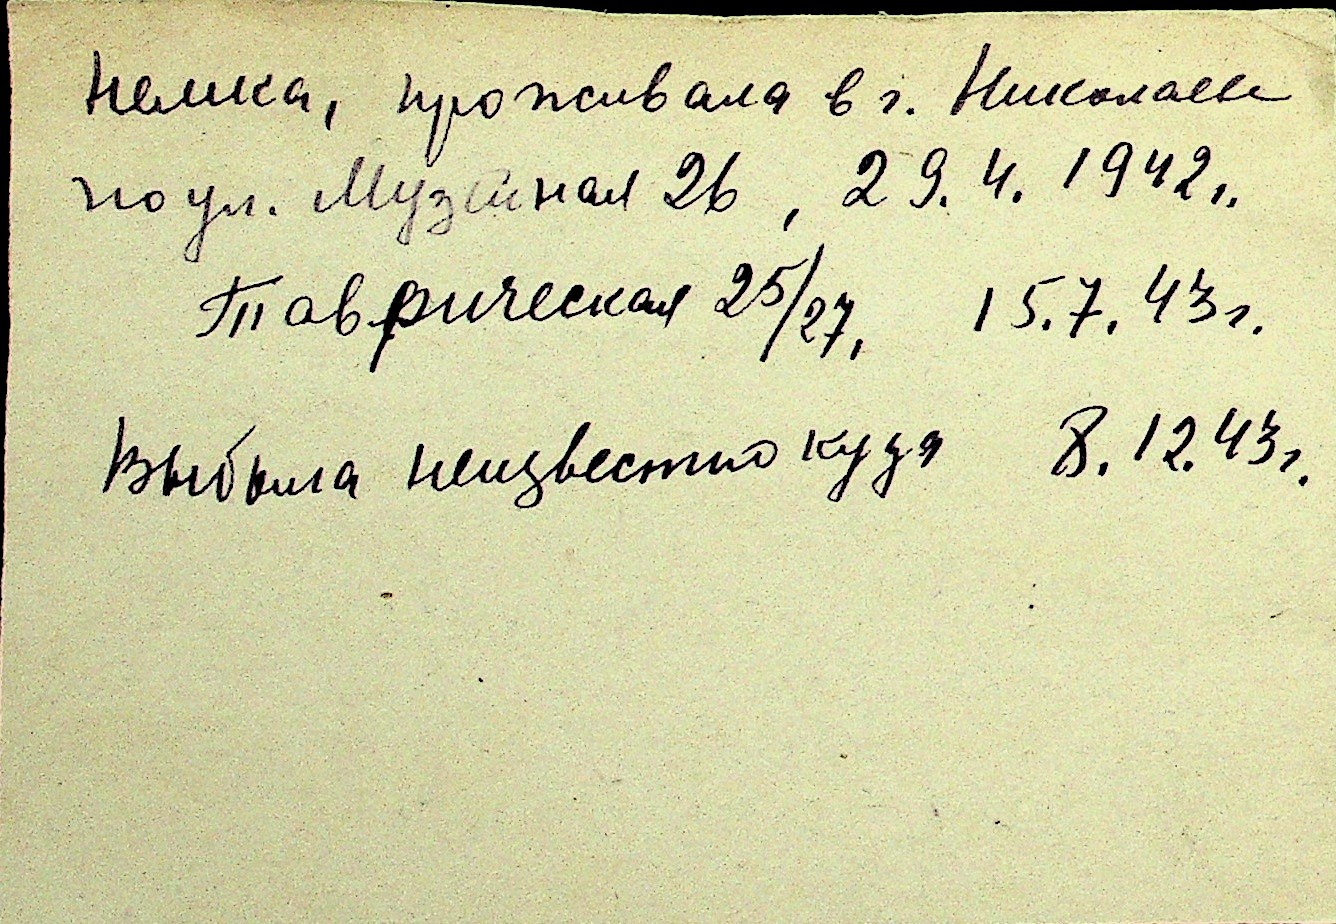 Немка, проживала в г. Николаеве
по ул. Музейная 26, 29.4.1942г.
Таврическая 25/27, 15.7.43г.
Выбыла неизвестно куда 8.12.43г.